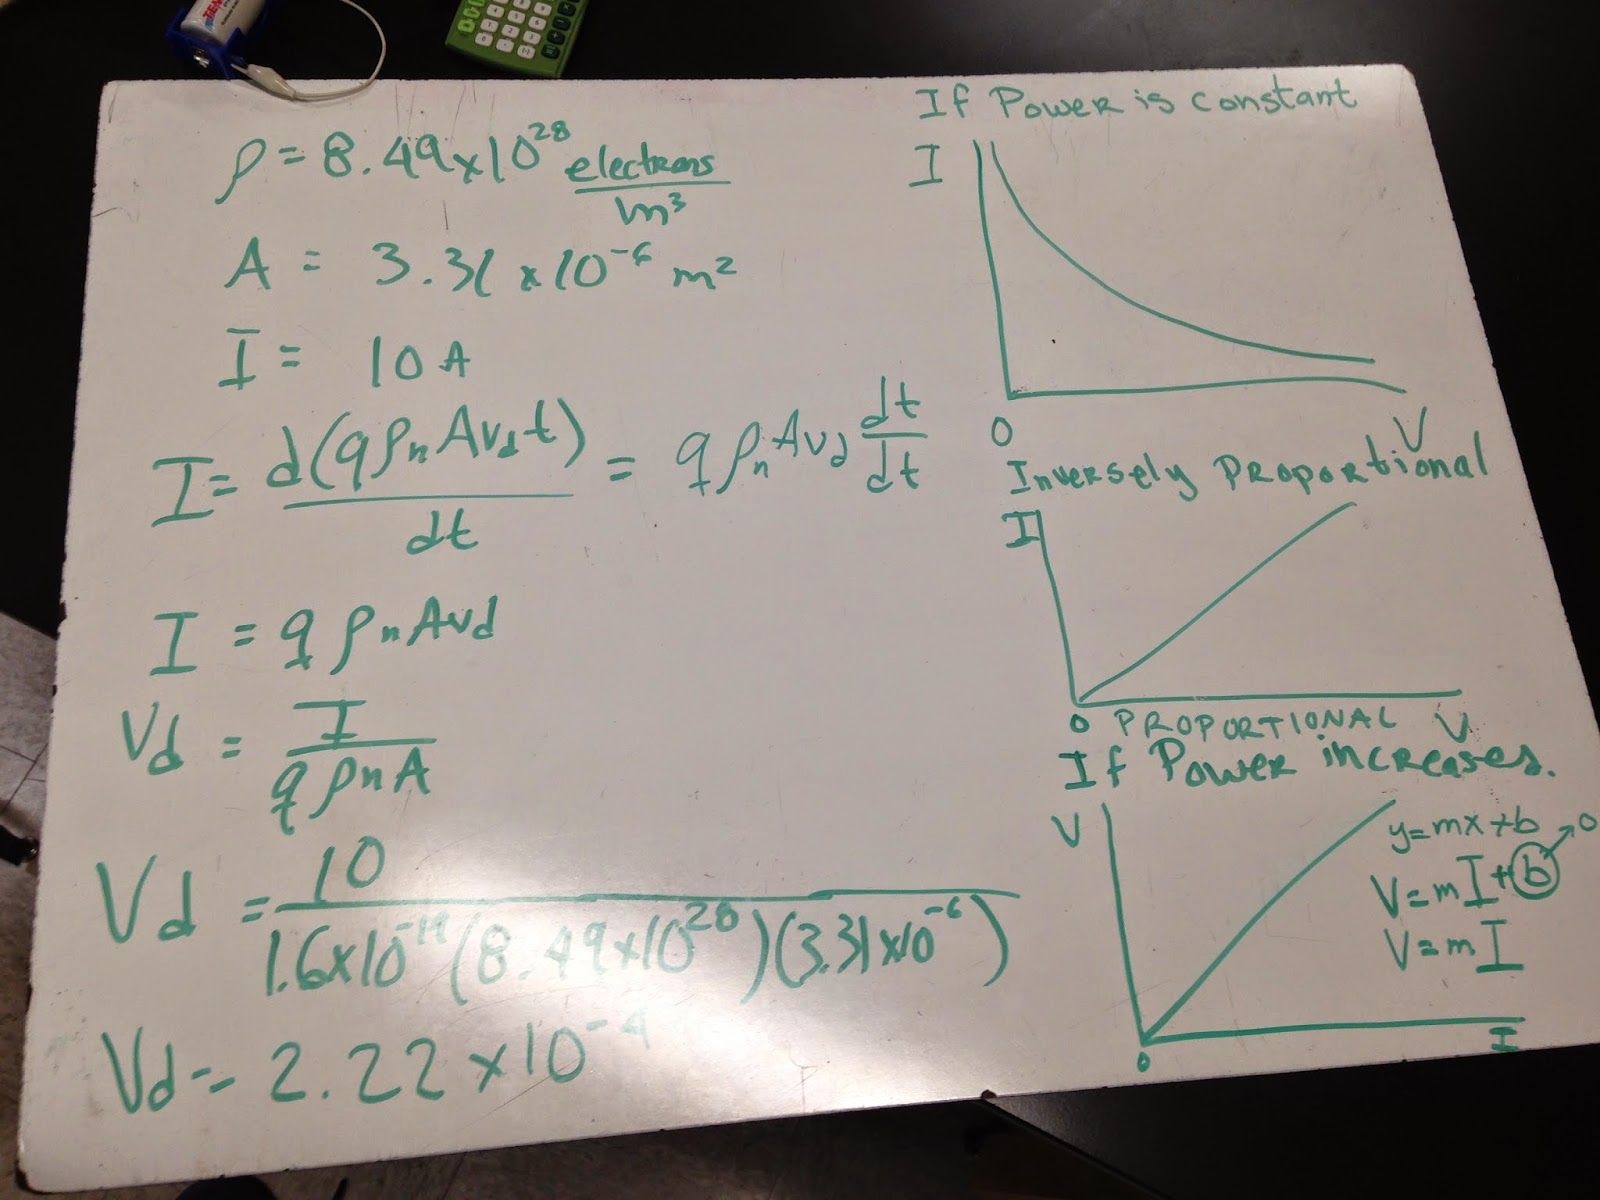 ρ = 8.49x10^28 electrons/m³
A = 3.31 x10^-6 m²
I = 10 A
I = d(qρₙAv_d t)/dt = qρₙAv_d dt/dt
I = qρₙAv_d
V_d = I/qρₙA
V_d = 10/1.6x10^-19(8.49x10^28)(3.31x10^-6)
V_d = 2.22 x10^-4
If Power is constant
I
0
V
Inversely Proportional
I
0 PROPORTIONAL V
If Power increases.
V
y=mx+b → 0
V=mI+b
V=mI
0
I